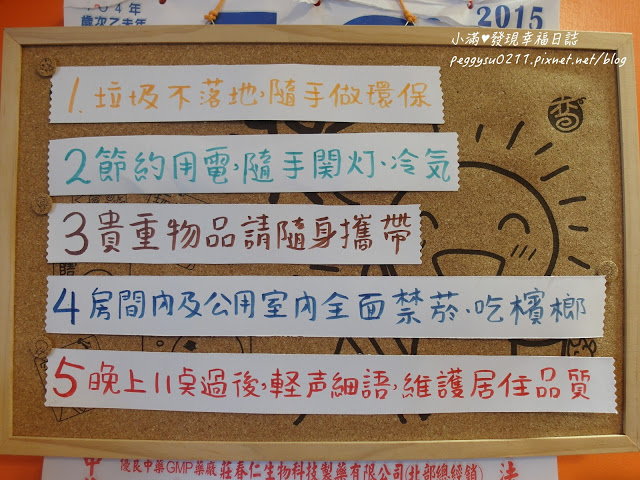 104年
歲次乙未年
2015
小滿♥發現幸福日誌
peggysu0211.pixnet.net/blog
1.垃圾不落地,隨手做環保
2節約用電,隨手関灯、冷気
3貴重物品請隨身攜帶
4房間內及公用室內全面禁菸、吃檳榔
5晚上11桌過後,軽声細語,維護居住品質
優良中藥GMP藥廠莊春仁生物科技製藥有限公司(北部總經銷)